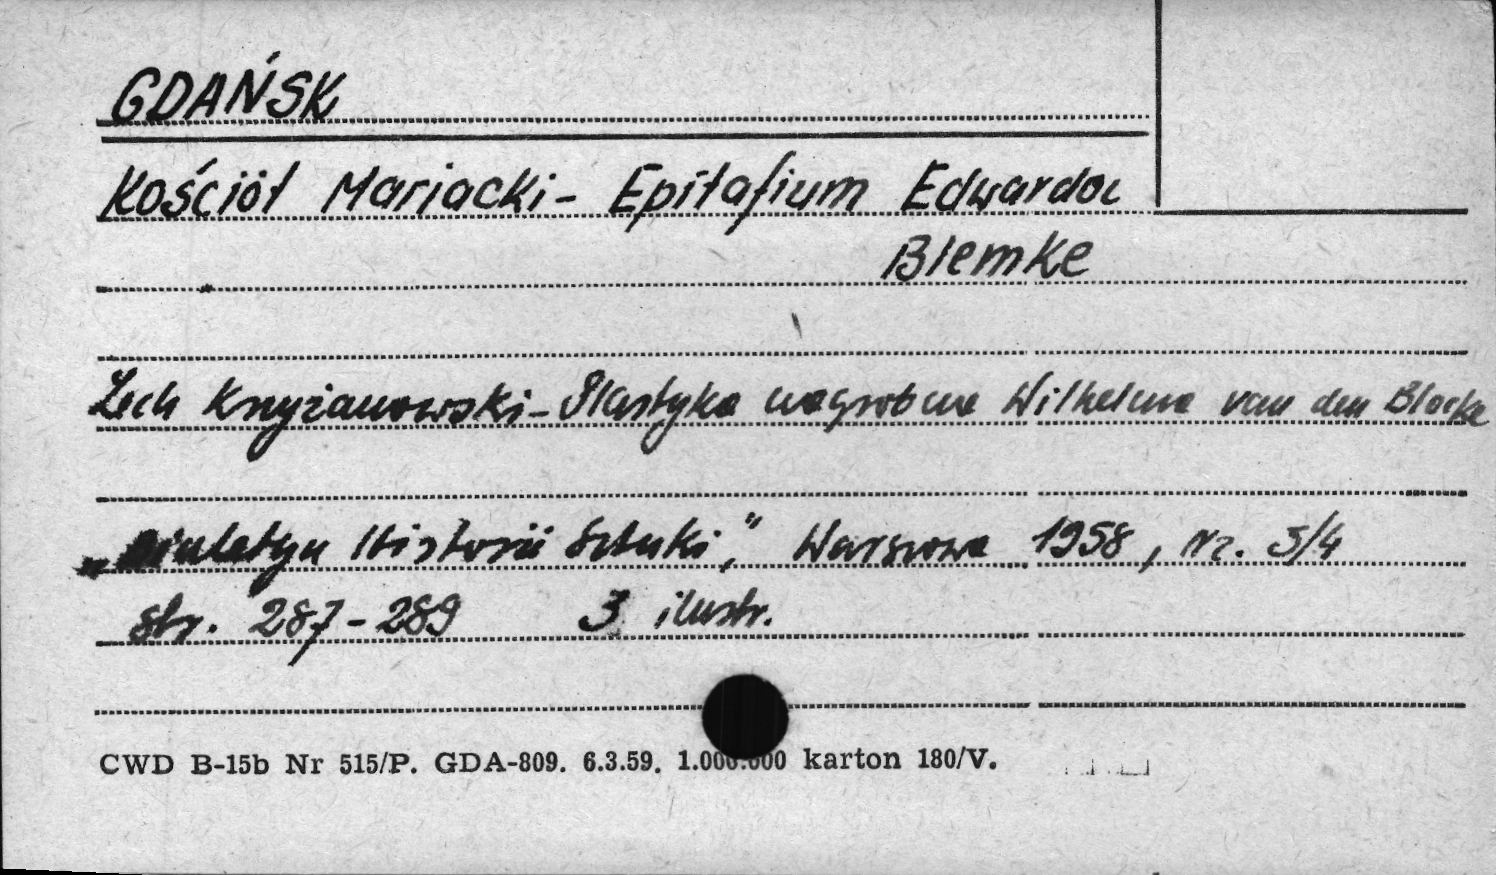 GDAŃSK
Kościół Mariacki - Epitafium Edwarda
Blemke
Lech Krzyżanowski - Plastyka nagrobna Wilhelma van den Blocke
„Biuletyn Historii Sztuki," Warszawa 1958, Nr. 3/4
str. 287-289 3 ilustr.
CWD B-15b Nr 515/P. GDA-809. 6.3.59. 1.000.000 karton 180/V.